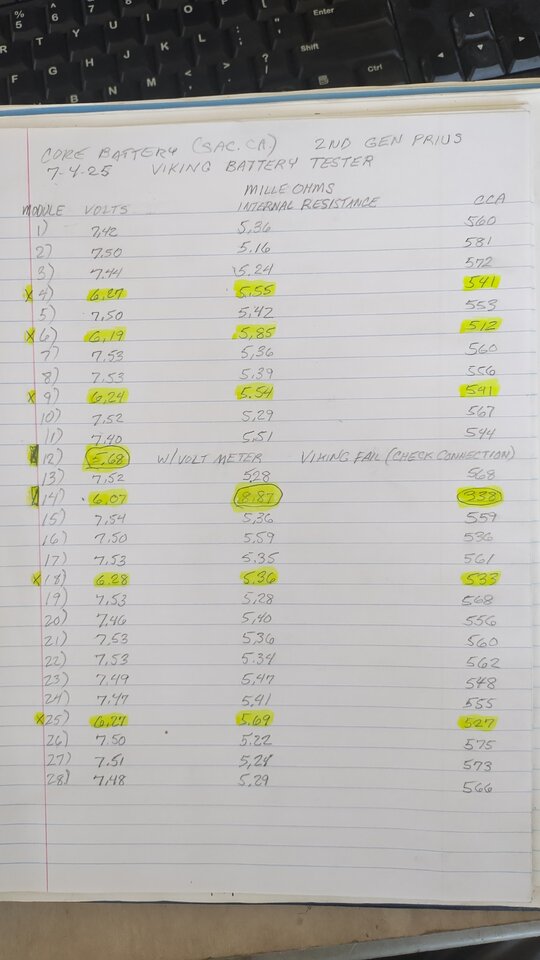 CORE BATTERY (SAC. CA.) 2ND GEN PRIUS
7-4-25 VIKING BATTERY TESTER
MILLE OHMS
MODULE VOLTS INTERNAL RESISTANCE CCA
1) 7.42 5.36 560
2) 7.50 5.16 581
3) 7.44 5.24 572
X 4) 6.27 5.55 541
5) 7.50 5.42 553
X 6) 6.19 5.85 512
7) 7.53 5.36 560
8) 7.53 5.39 556
X 9) 6.24 5.54 541
10) 7.52 5.29 567
11) 7.40 5.51 544
12) 5.68 W/VOLT METER VIKING FAIL (CHECK CONNECTION)
13) 7.52 5.28 568
14) 6.07 8.87 338
15) 7.54 5.36 559
16) 7.50 5.59 536
17) 7.53 5.35 561
X 18) 6.28 5.36 533
19) 7.53 5.28 568
20) 7.46 5.40 556
21) 7.53 5.36 560
22) 7.53 5.34 562
23) 7.49 5.47 548
24) 7.47 5.41 555
X 25) 6.27 5.69 527
26) 7.50 5.22 575
27) 7.51 5.24 573
28) 7.48 5.29 566